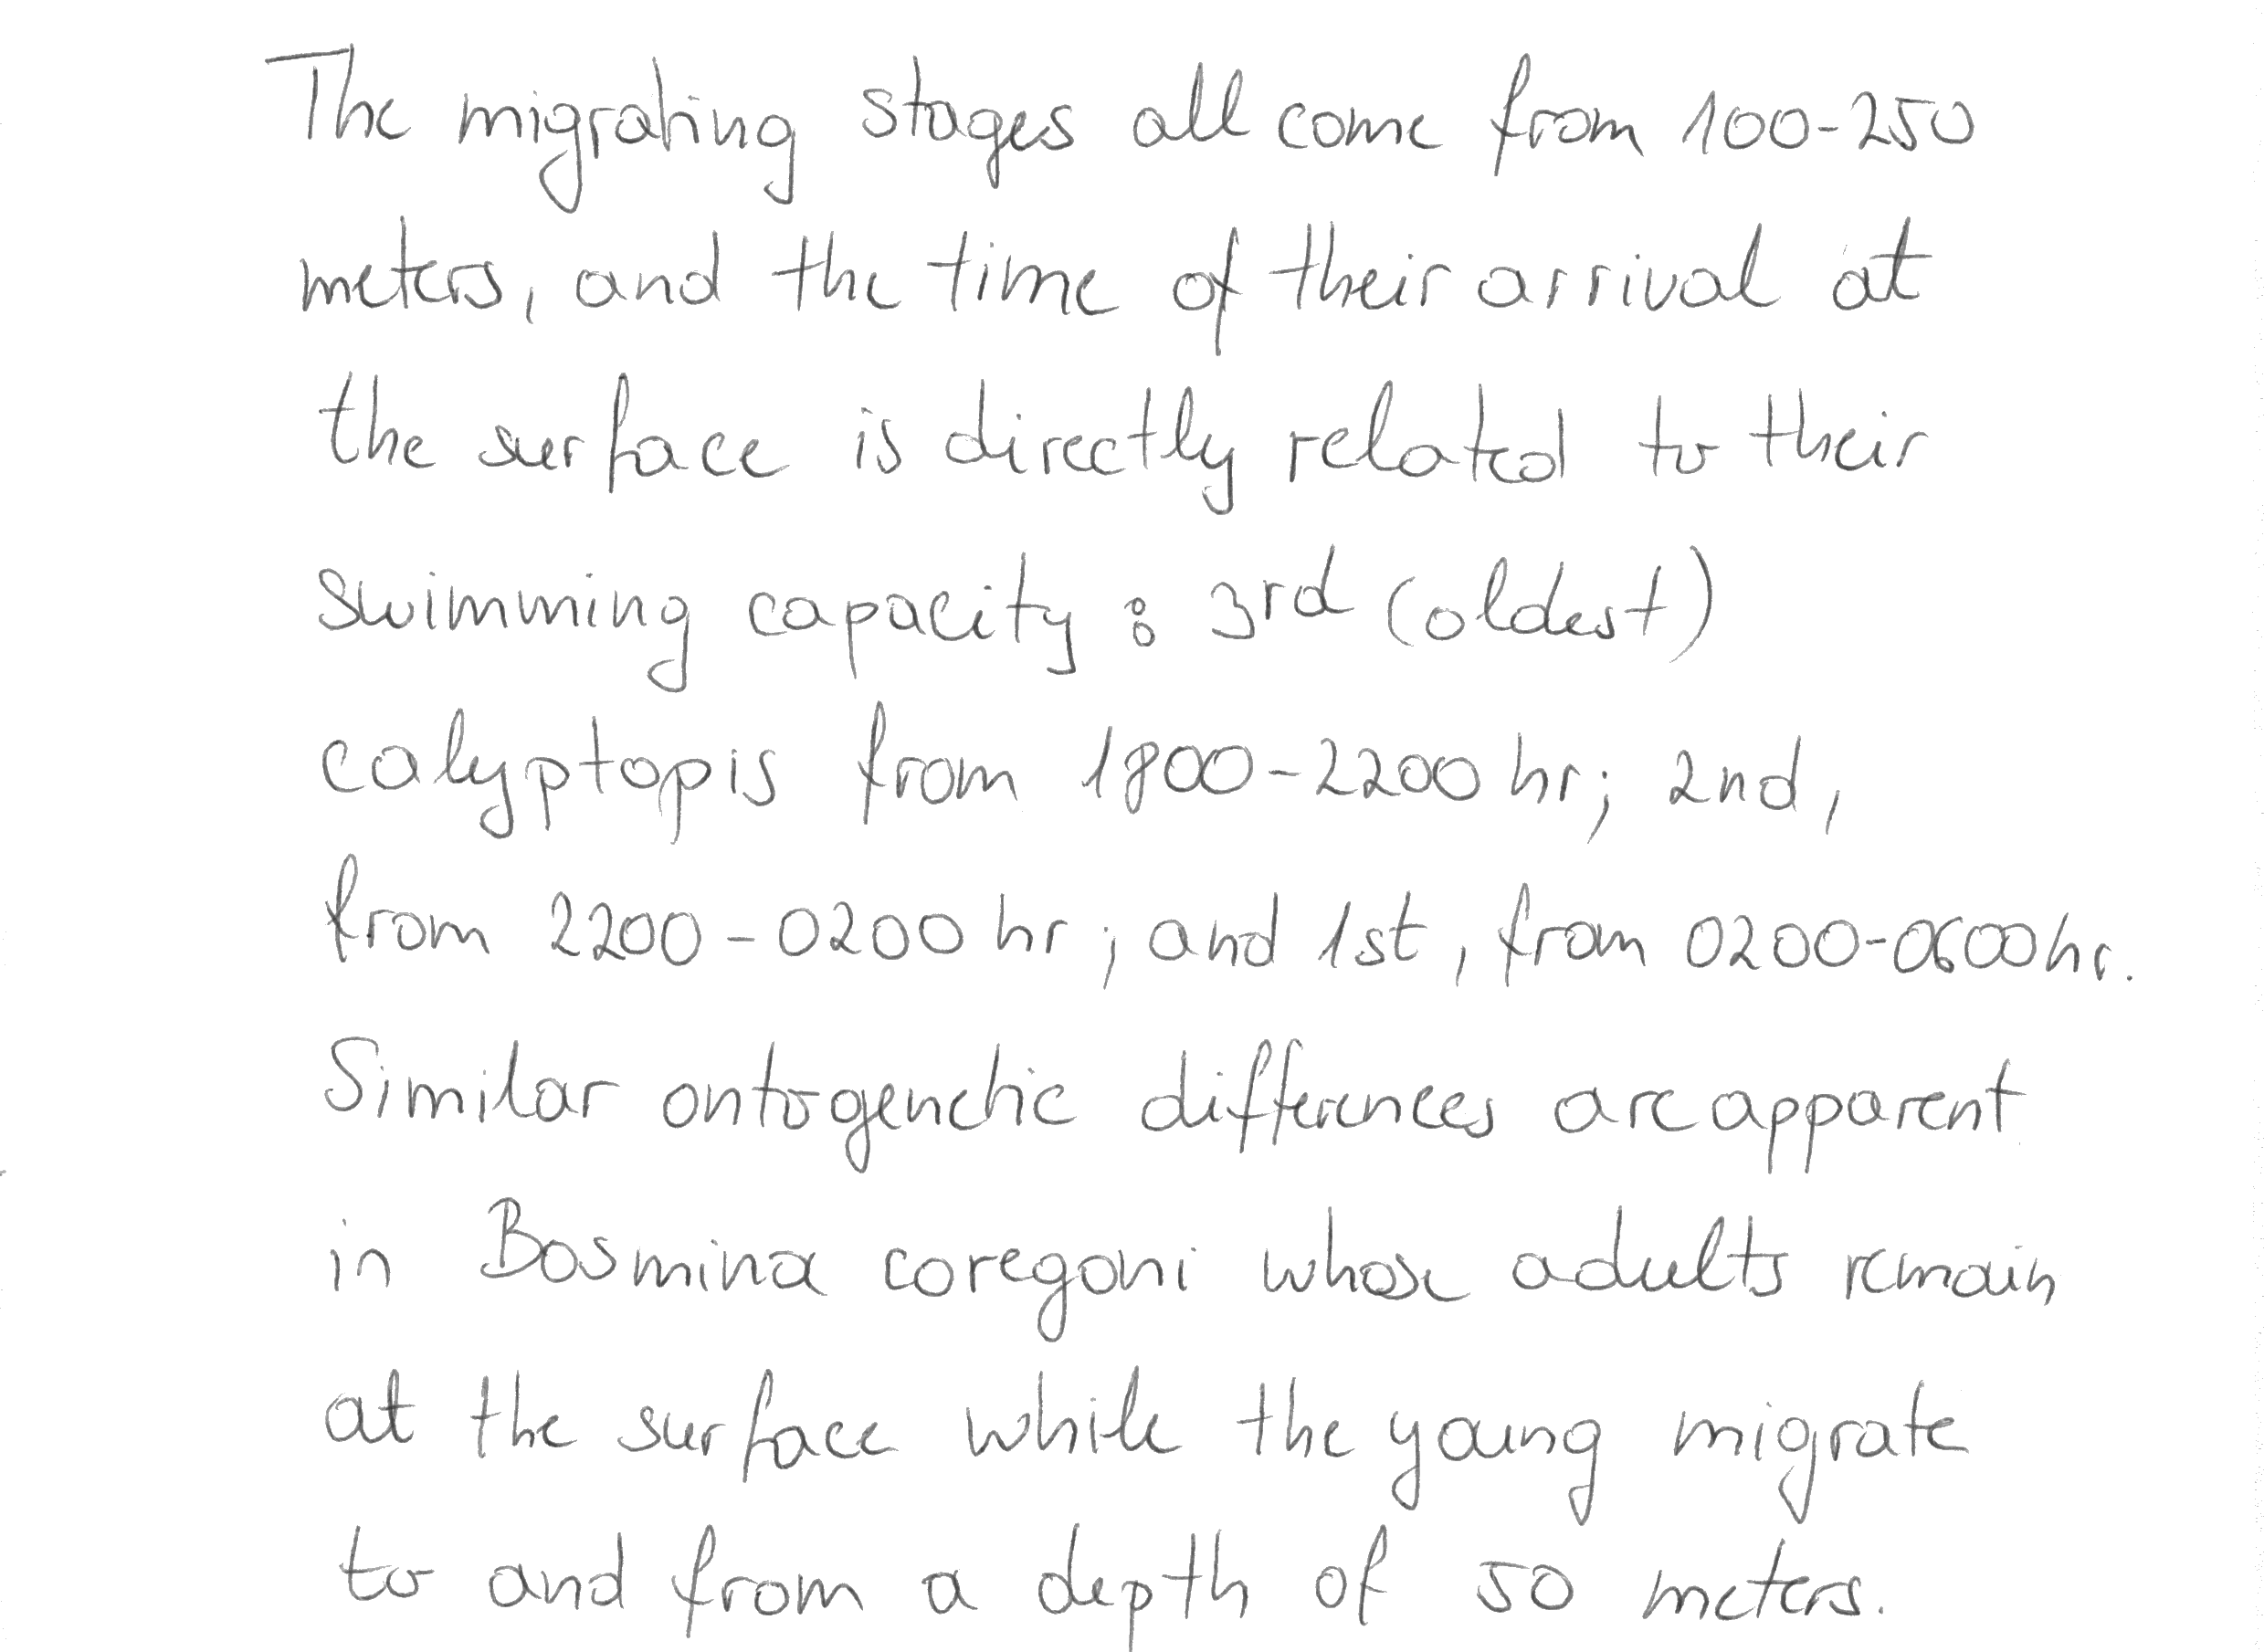 The migrating stages all come from 100-250
meters, and the time of their arrival at
the surface is directly related to their
swimming capacity: 3rd (oldest)
calyptopis from 1800-2200 hr; 2nd,
from 2200-0200 hr; and 1st, from 0200-0600 hr.
Similar ontogenetic differences are apparent
in Bosmina coregoni whose adults remain
at the surface while the young migrate
to and from a depth of 50 meters.